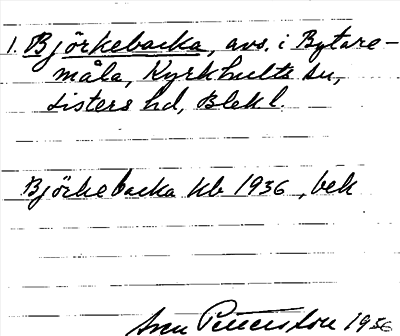 1. Björkebacka, avs. i Bytare-
måla, Kyrkhults sn,
Listers hd, Blekl.
Björkebacka kb 1936, bek
Sven Pettersson 1956